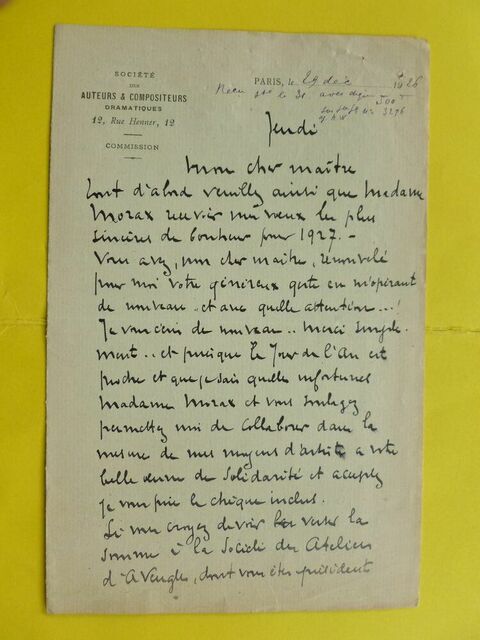 SOCIÉTÉ
DES
AUTEURS & COMPOSITEURS
DRAMATIQUES
12, Rue Henner, 12
COMMISSION
PARIS, le 29 déc 1926
Reçu le 31 avec
500
3296
Jeudi
Mon cher maître
tout d'abord veuillez ainsi que Madame
Morax recevoir mes vœux les plus
sincères de bonheur pour 1927. -
Vous avez, mon cher maître, renouvelé
pour moi votre généreux geste en m'opérant
de nouveau .. et avec quelle attention...!
Je vous dis de nouveau .. merci simple-
ment .. et puisque le Jour de l'An est
proche et que je sais quelles infortunes
Madame Morax et vous soulagez
permettez moi de collaborer dans la
mesure de mes moyens d'artiste a votre
belle œuvre de Solidarité et acceptez
je vous prie le chèque inclus.
Si vous croyez devoir verser la
somme à la Société des Ateliers
d'Aveugles, dont vous êtes président